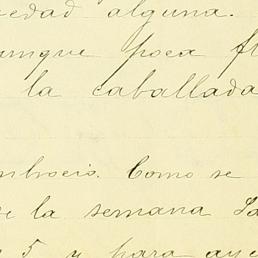 vedad alguna.
unque poca fl
la caballada
mbrocio. Como se
de la semana Sa
5 y para aye